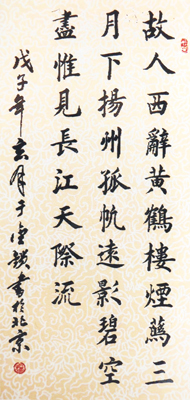 故人西辭黃鶴樓煙蘤三
月下揚州孤帆遠影碧空
盡惟見長江天際流
戊子年玄月于書於北京